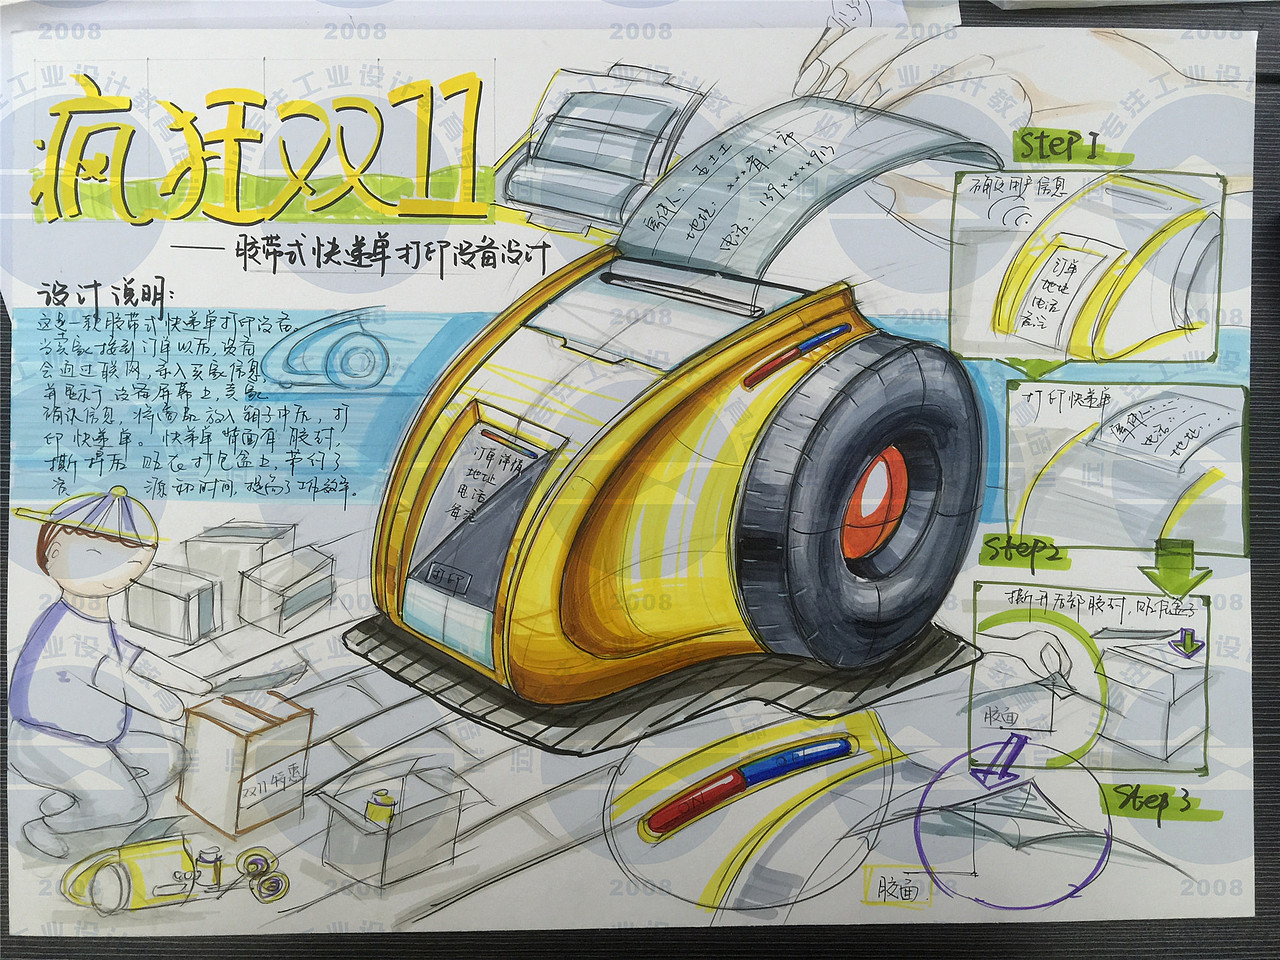 疯狂双11
——胶带式快递单打印设备设计
设计说明:
这是一款胶带式快递单打印设备。
当卖家接到订单以后,设备
会通过联网,录入买家信息,
并显示于设备屏幕上,卖家
确认信息,将商品放入箱子中后,打
印快递单。快递单背面有胶衬,
撕掉后贴在打包盒上,节约了
时间,提高了工作效率。
地址:
电话:139×××××913
订单详情
地址
电话
备注
打印
Step 1
确认用户信息
订单
地址
电话
备注
打印快递单
电话:
地址:
Step2
撕开后部胶衬,贴包盒
胶面
Step 3
胶面
ON
OFF
双11特惠
2008
专注工业设计教育